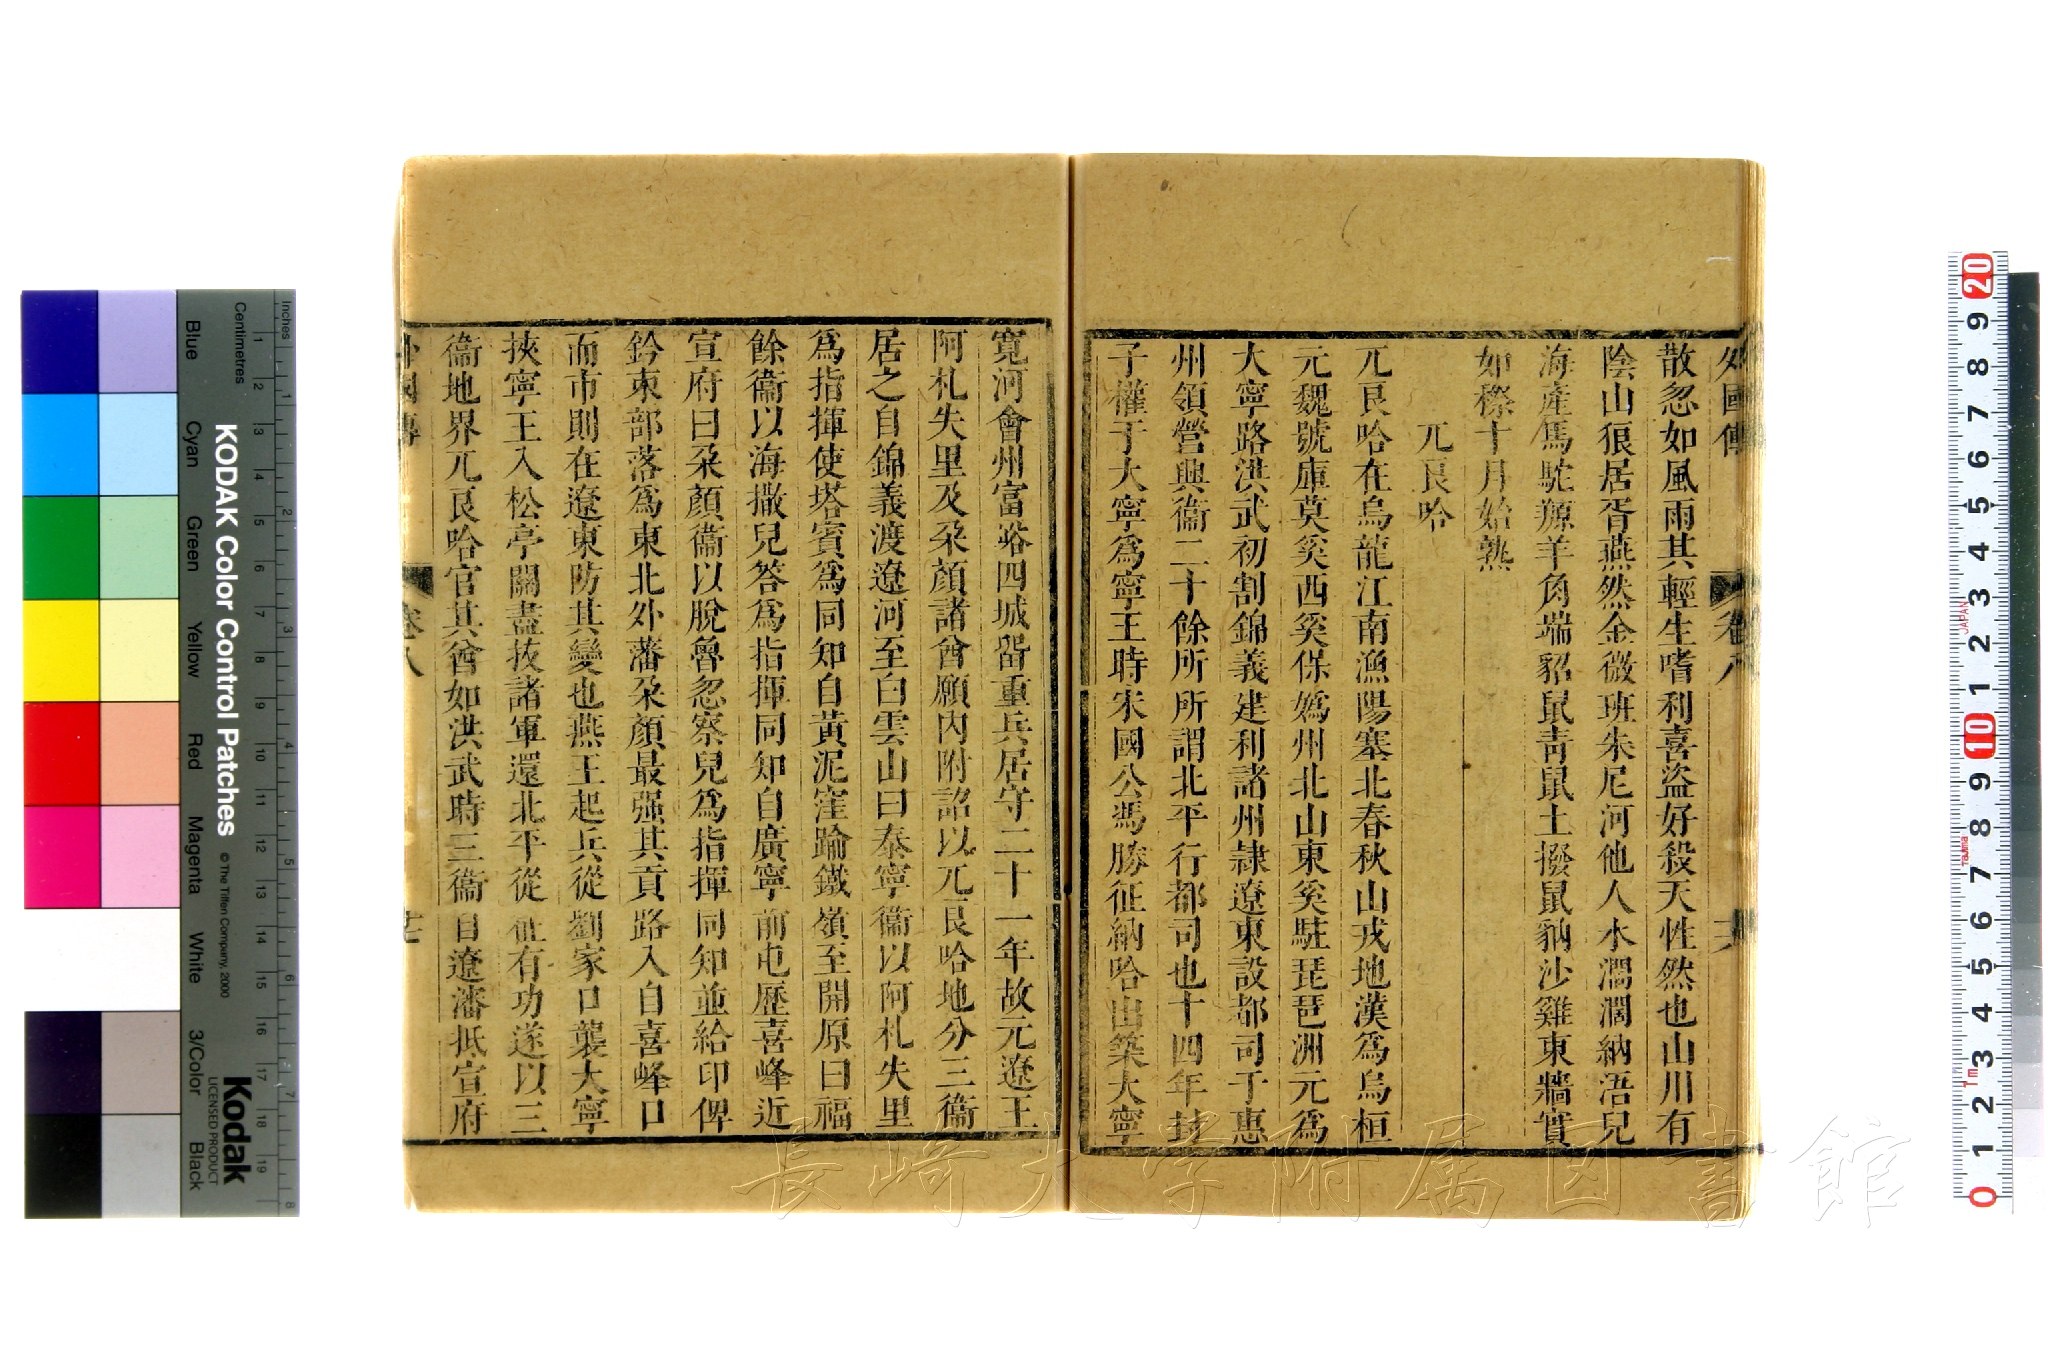 外國傳 卷八
散忽如風雨其輕生嗜利喜盜好殺天性然也山川有
陰山狼居胥燕然金微班朱尼河他人水濶濶納浯兒
海產馬駝羱羊角端貂鼠青鼠土撥鼠豽沙雞東牆實
如穄十月始熟
兀良哈
兀良哈在烏龍江南漁陽塞北春秋山戎地漢為烏桓
元魏號庫莫奚西奚保媯州北山東奚駐琵琶洲元為
大寧路洪武初割錦義建利諸州隸遼東設都司于惠
州領營興衞二十餘所所謂北平行都司也十四年封
子權于大寧為寧王時宋國公馮勝征納哈出築大寧
寬河會州富峪四城畱重兵居守二十一年故元遼王
阿札失里及朶顏諸酋願內附詔以兀良哈地分三衞
居之自錦義渡遼河至白雲山曰泰寧衞以阿札失里
為指揮使塔賓為同知自黃泥窪踰鐵嶺至開原曰福
餘衞以海撒兒答為指揮同知自廣寧前屯歷喜峰近
宣府曰朶顏衞以脫魯忽察兒為指揮同知並給印俾
鈐束部落為東北外藩朶顏最强其貢路入自喜峰口
而市則在遼東防其變也燕王起兵從劉家口襲大寧
挾寧王入松亭關盡拔諸軍還北平從征有功遂以三
衞地界兀良哈官其酋如洪武時三衞自遼瀋抵宣府
外國傳 卷八 廿
長崎大学附属図書館
KODAK Color Control Patches
© The Tiffen Company, 2000
Kodak
LICENSED PRODUCT
Inches
Centimetres
Blue
Cyan
Green
Yellow
Red
Magenta
White
3/Color
Black
1 2 3 4 5 6 7 8 9 10 11 12 13 14 15 16 17 18 19
1 2 3 4 5 6 7 8
20 9 8 7 6 5 4 3 2 1 10 9 8 7 6 5 4 3 2 1 0
JAPAN
Tajima
1m